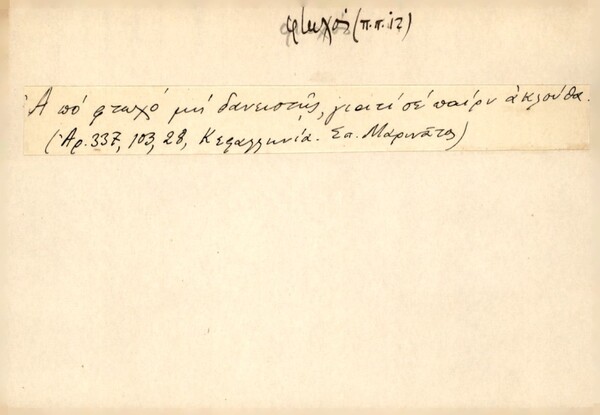 φτωχός (π.π. 12)
Ἀπό φτωχό μή δανειστῆς, γιατί σέ παίρν ἀκλούθα.
(Ἀρ. 337, 103, 28, Κεφαλληνία. Σπ. Μαρινᾶτος)